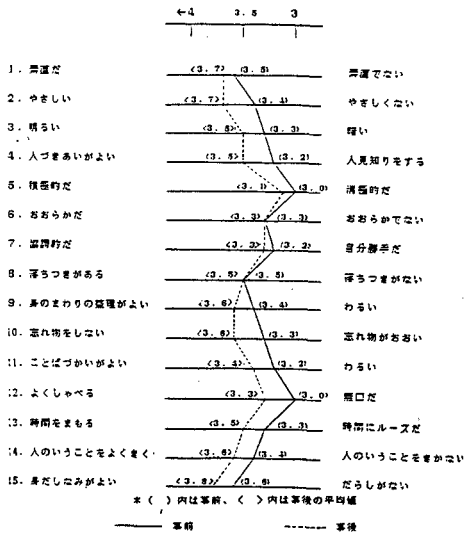 ←4 3.5 3
1. 素直だ <3.7> (3.5) 素直でない
2. やさしい <3.7> (3.4) やさしくない
3. 明るい <3.5> (3.3) 暗い
4. 人づきあいがよい <3.5> (3.2) 人見知りをする
5. 積極的だ <3.1> (3.0) 消極的だ
6. おおらかだ <3.3> (3.3) おおらかでない
7. 協調的だ <3.3> (3.2) 自分勝手だ
8. 落ちつきがある <3.5> (3.5) 落ちつきがない
9. 身のまわりの整理がよい <3.6> (3.4) わるい
10. 忘れ物をしない <3.6> (3.3) 忘れ物がおおい
11. ことばづかいがよい <3.4> (3.2) わるい
12. よくしゃべる <3.3> (3.0) 無口だ
13. 時間をまもる <3.5> (3.3) 時間にルーズだ
14. 人のいうことをよくきく <3.6> (3.4) 人のいうことをきかない
15. 身だしなみがよい <3.8> (3.6) だらしがない
*( )内は事前、< >内は事後の平均値
事前 事後